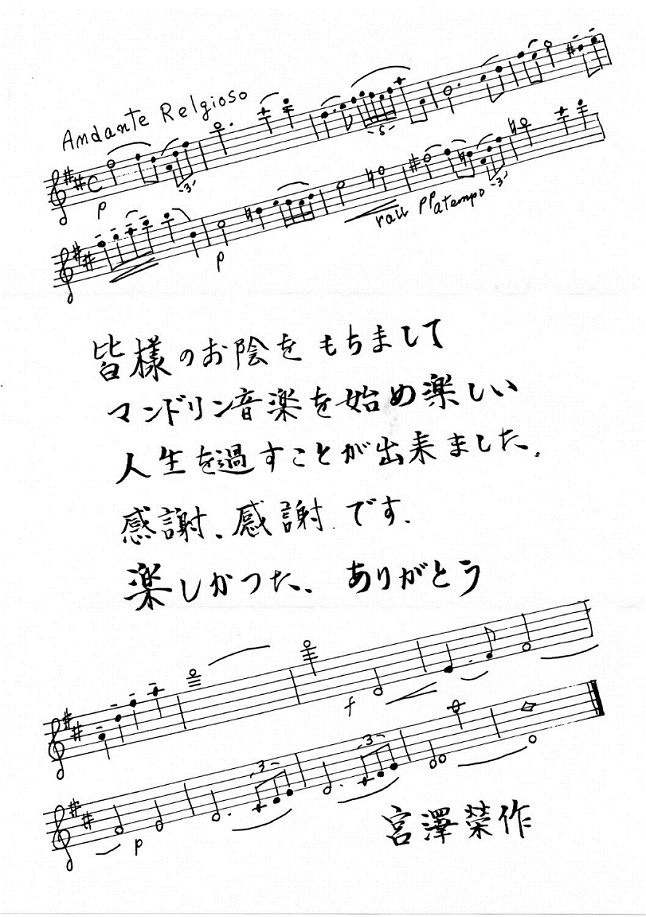 Andante Relgioso
3
5
p
3
p
rall pp a tempo
3
皆様のお陰をもちまして
マンドリン音楽を始め楽しい
人生を過すことが出来ました。
感謝、感謝です.
楽しかった、ありがとう
f
3
3
p
宮澤榮作